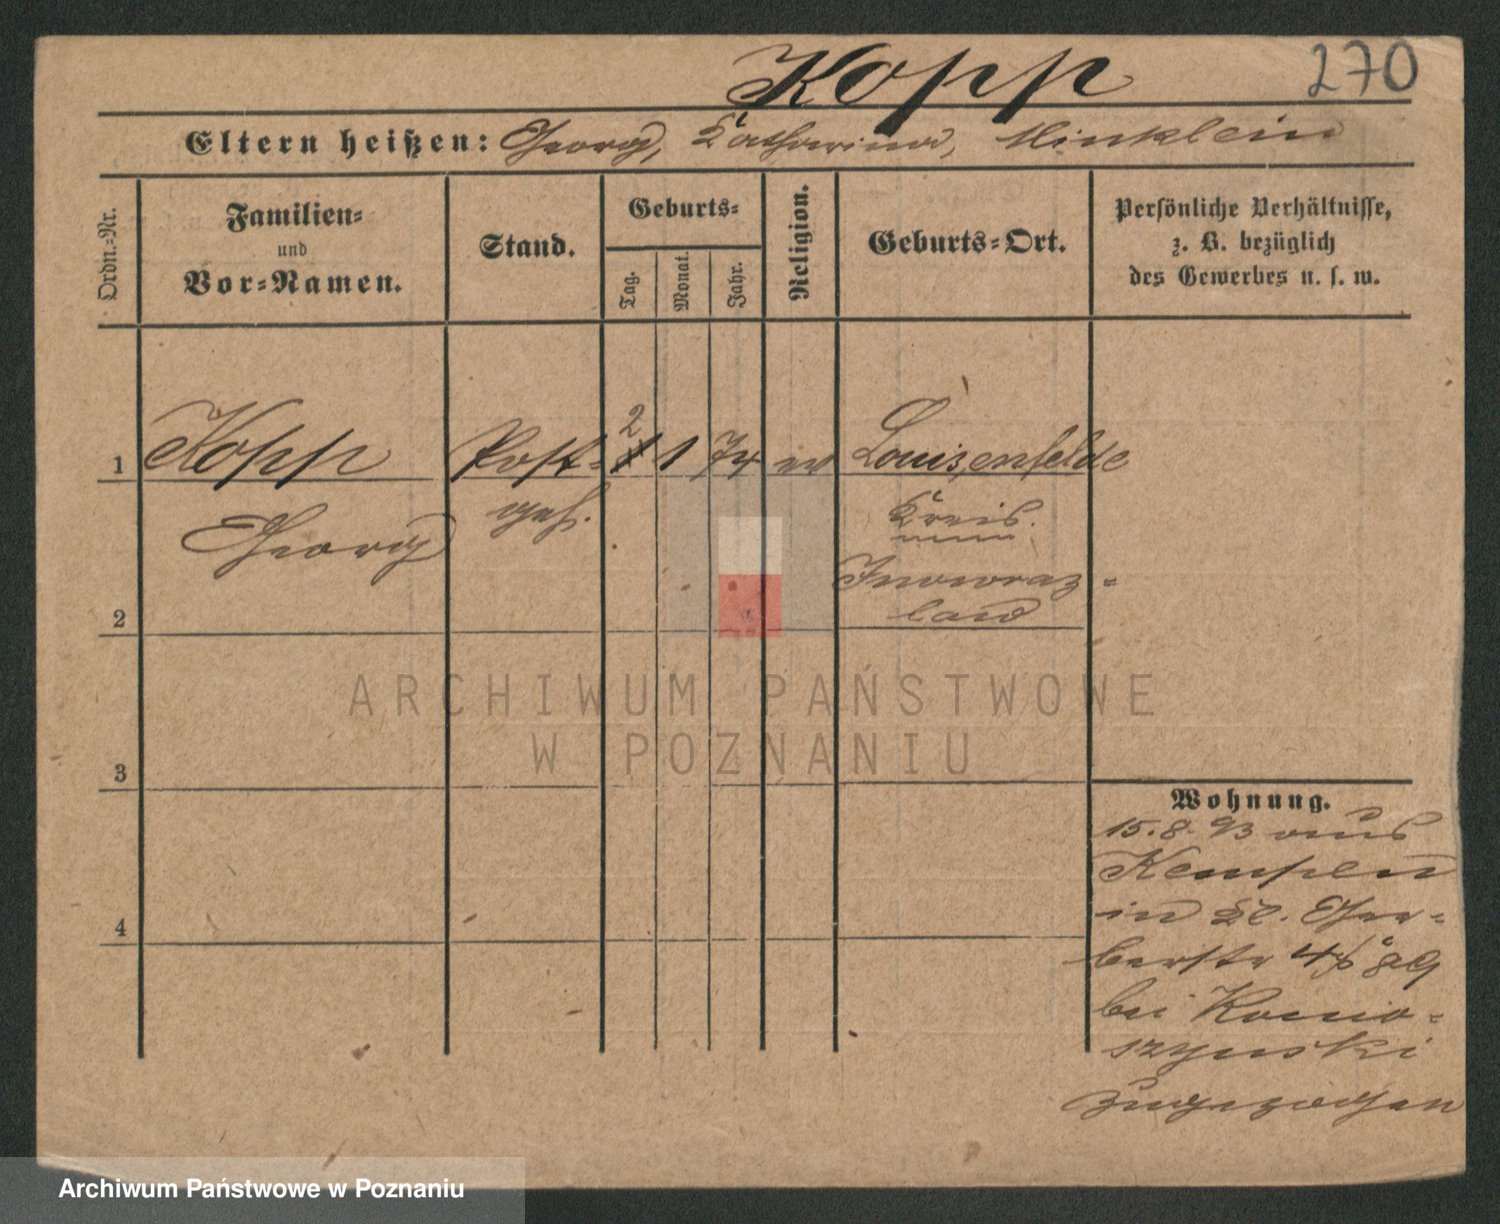 Kopp
270
Eltern heißen: Georg, Katharina, Minklein
Ordn.-Nr.
Familien-
und
Vor-Namen.
Stand.
Geburts-
Tag.
Monat.
Jahr.
Religion.
Geburts-Ort.
Persönliche Verhältnisse,
z. B. bezüglich
des Gewerbes u. s. w.
1 Kopp Post- 2 1 74 ev Louisenfelde
Georg geh. Kreis
Inowraz-
law
2
3
4
Wohnung.
15.8.93 aus
Kempen
in Kl. Ger-
berstr
bei
szynski
zugezogen
ARCHIWUM PAŃSTWOWE
W POZNANIU
Archiwum Państwowe w Poznaniu